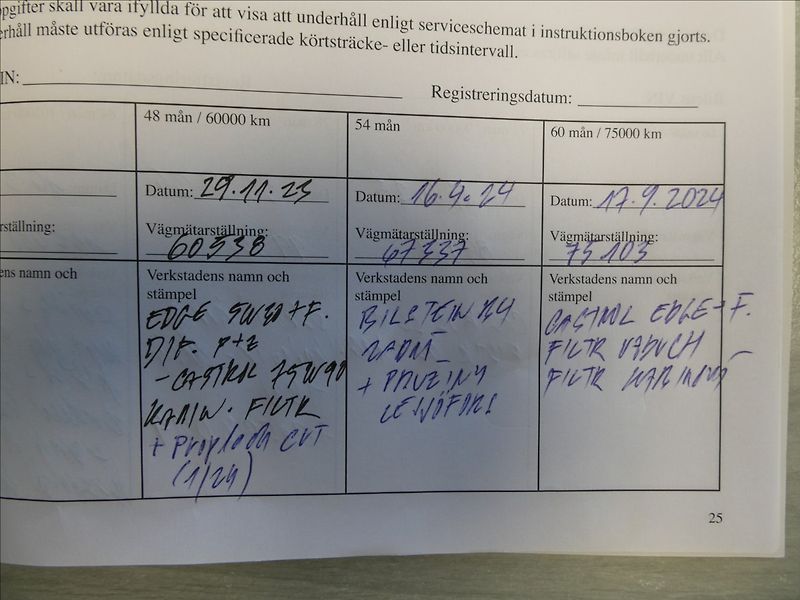 pgifter skall vara ifyllda för att visa att underhåll enligt serviceschemat i instruktionsboken gjorts.
rhåll måste utföras enligt specificerade körtsträcke- eller tidsintervall.
IN:
Registreringsdatum:
48 mån / 60000 km
54 mån
60 mån / 75000 km
Datum: 29.11.23
Datum: 16.4.24
Datum: 17.9.2024
rställning:
Vägmätarställning:
60538
Vägmätarställning:
67337
Vägmätarställning:
75103
ens namn och
Verkstadens namn och
stämpel
EDGE 5W30+F.
DIF. P+Z
-CASTROL 75W90
FILTR
+ CVT
(1/24)
Verkstadens namn och
stämpel
BILSTEIN B4
+ PRUŽINY
LESJÖFORS
Verkstadens namn och
stämpel
CASTROL EDGE+F.
FILTR VZDUCH
FILTR
25